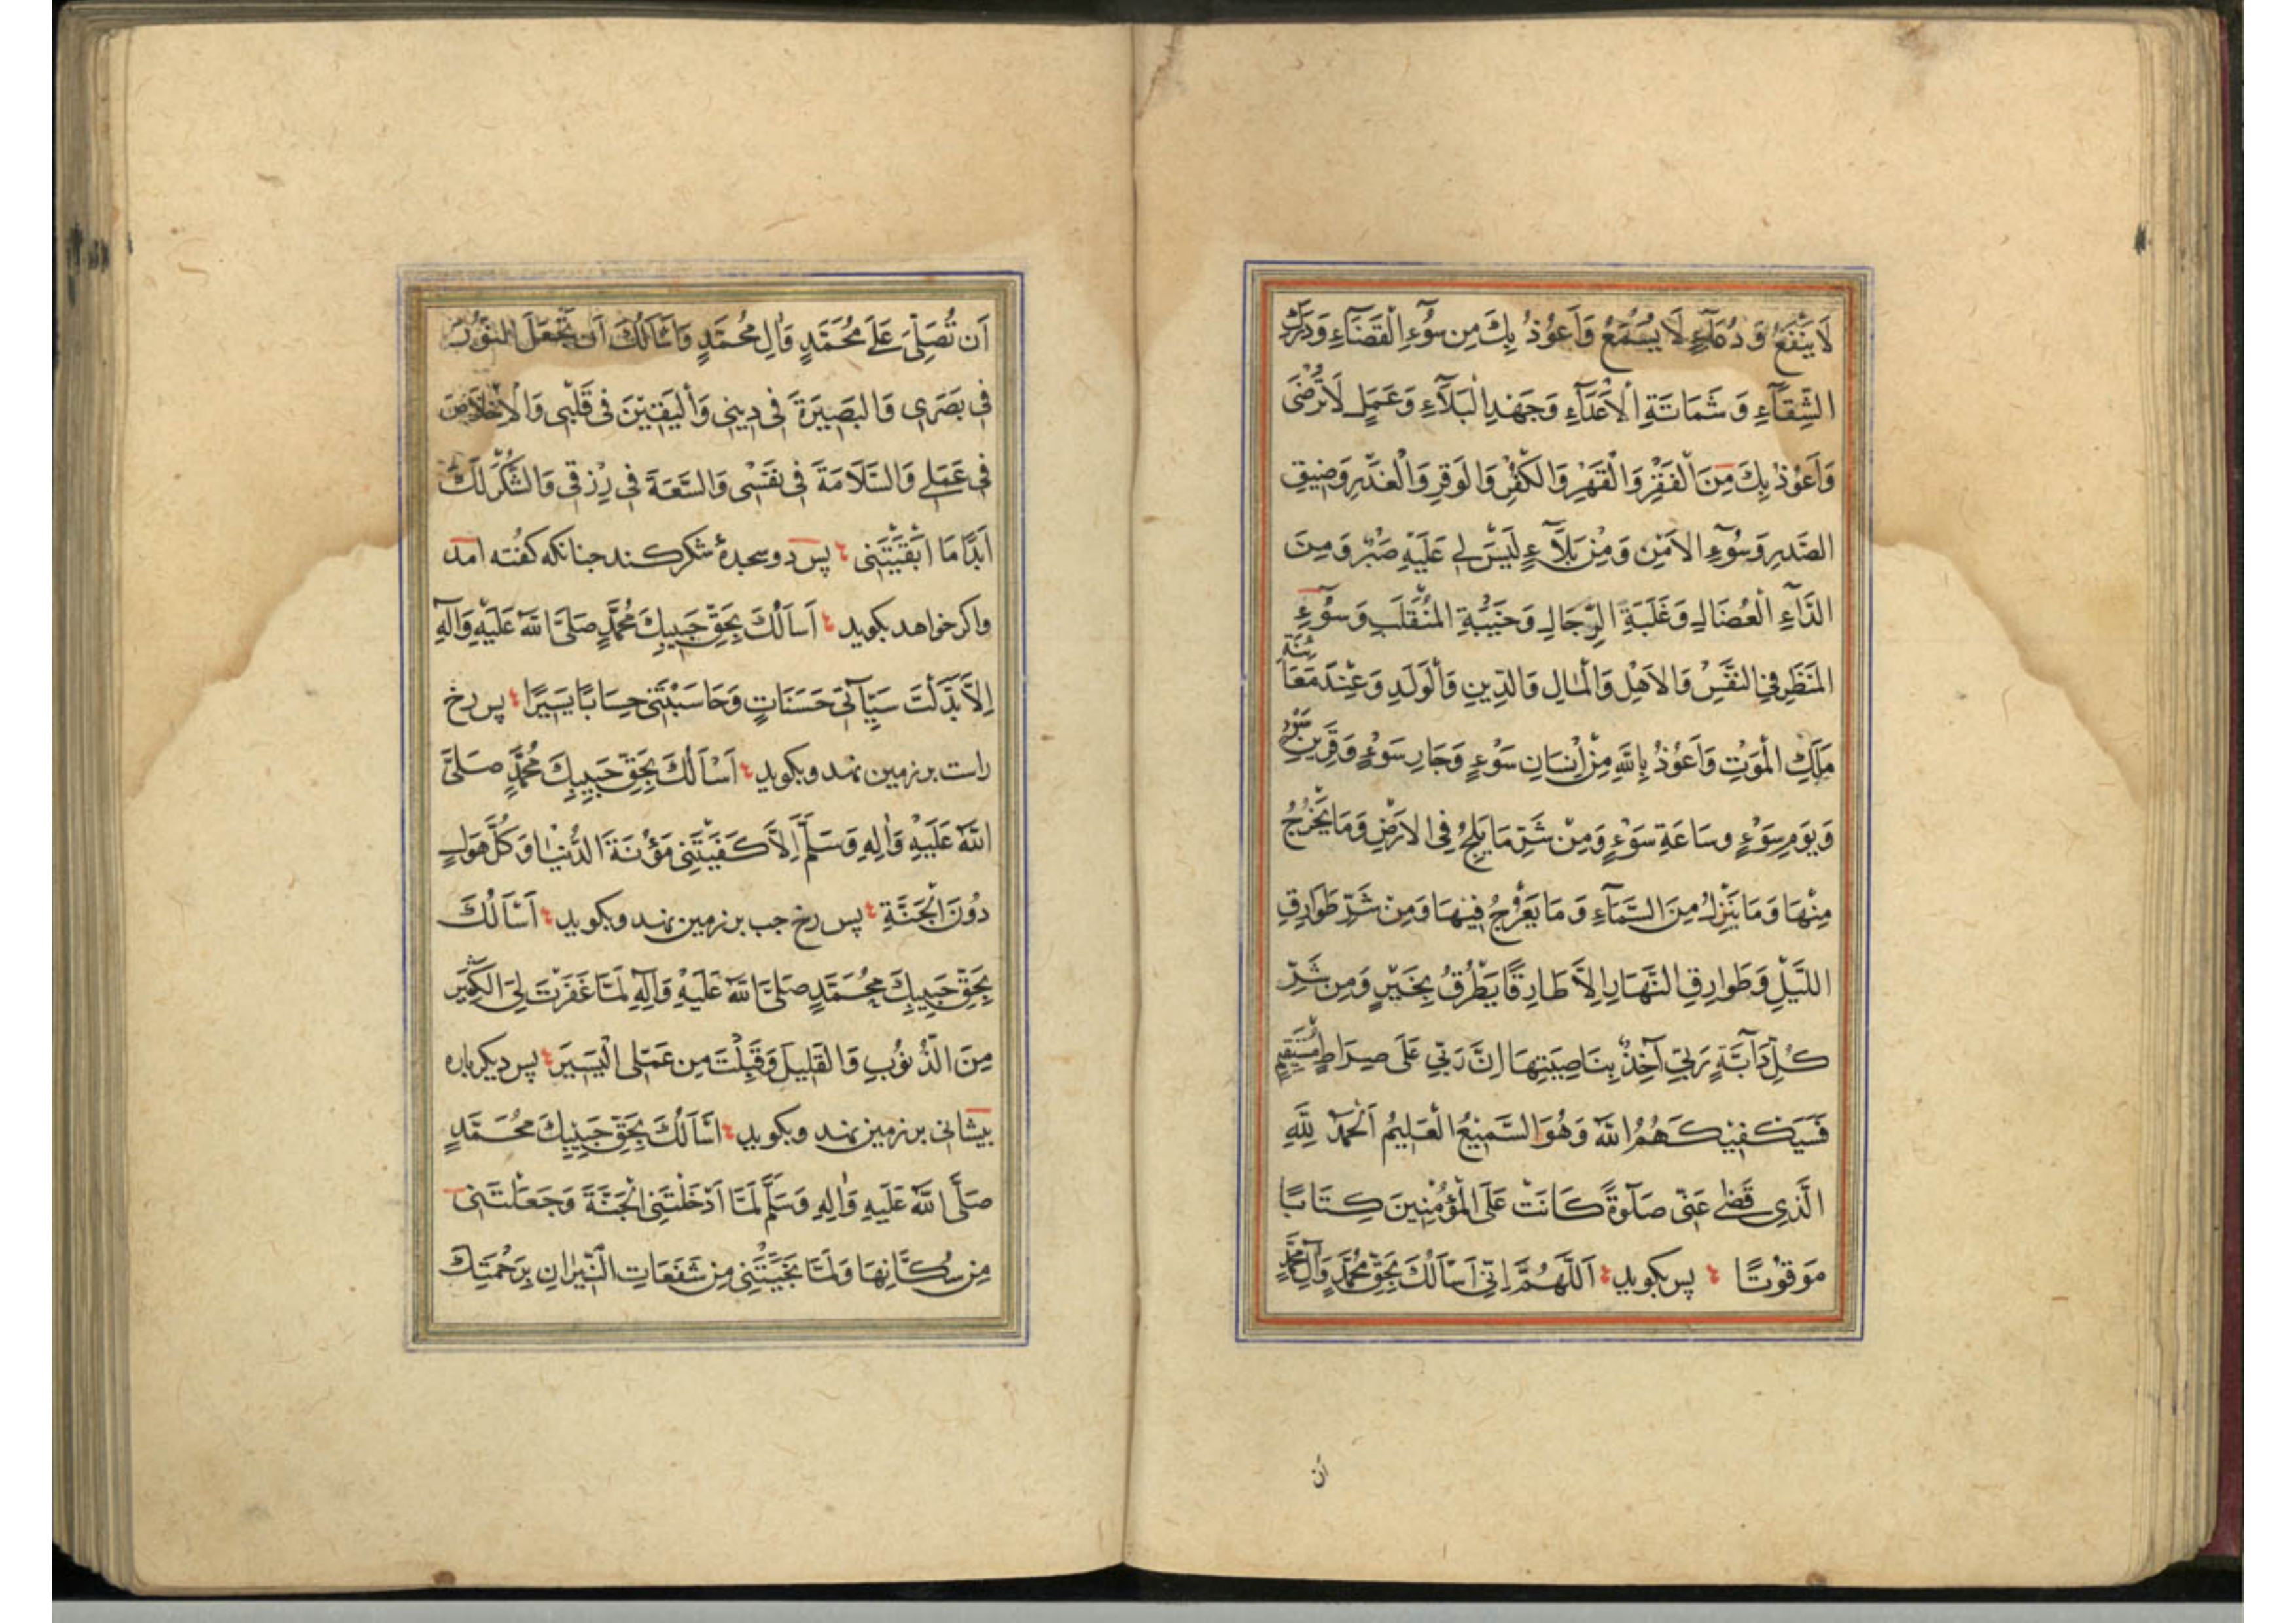 لَا يَنْفَعُ وَ دُعَآءٍ لَا يُسْمَعُ وَ اَعُوْذُ بِكَ مِن سُوْءِ الْقَضَآءِ وَدَرَكِ
الشَّقَآءِ وَ شَمَاتَةِ الْاَعْدَآءِ وَجَهْدِ الْبَلَآءِ وَعَمَلٍ لَا تَرْضٰى
وَاَعُوْذُ بِكَ مِنَ الْفَقْرِ وَالْقَهْرِ وَالْكُفْرِ وَالوَقْرِ وَالْغَدْرِ وَضِيقِ
الصَّدرِ وَسُوْءِ الاَمْرِ وَمِنْ بَلَآءٍ لَيْسَ لِى عَلَيْهِ صَبْرٌ وَمِنَ
الدَّآءِ الْعُضَالِ وَغَلَبَةِ الرِّجَالِ وَخَيْبَةِ المُنْقَلَبِ وَسُوْءِ
المَنْظَرِ فِي النَّفْسِ وَالاَهْلِ وَالْمَالِ وَالدِّينِ وَالْوَلَدِ وَعِنْدَ مُعَايَنَةِ
مَلَكِ الْمَوْتِ وَاَعُوْذُ بِاللّٰهِ مِنْ اِنْسَانِ سَوْءٍ وَجَارِ سَوْءٍ وَقَرِينِ سَوْءٍ
وَيَوْمِ سَوْءٍ وسَاعَةِ سَوْءٍ وَمِنْ شَرِّ مَا يَلِجُ فِى الاَرْضِ وَمَا يَخْرُجُ
مِنْهَا وَمَا يَنْزِلُ مِنَ السَّمَآءِ وَ مَا يَعْرُجُ فِيْهَا وَمِنْ شَرِّ طَوَارِقِ
اللَّيْلِ وَطَوَارِقِ النَّهَارِ اِلاَّ طَارِقًا يَطْرُقُ بِخَيْرٍ وَمِن شَرِّ
كُلِّ دَآبَّةٍ رَبِّى آخِذٌ بِنَاصِيَتِهَا اِنَّ رَبِّي عَلَى صِرَاطٍ مُسْتَقِيمٍ
فَسَيَكْفِيْكَهُمُ اللّٰهُ وَهُوَ السَّمِيْعُ الْعَلِيمُ اَلْحَمْدُ لِلّٰهِ
الَّذِى قَضٰى عَنِّى صَلٰوةً كَانَتْ عَلَى الْمُؤْمِنِينَ كِتَابًا
مَوْقُوْتًا پس بكويد اَللّٰهُمَّ اِنِّى اَسْأَلُكَ بِحَقِّ مُحَمَّدٍ وَآلِ مُحَمَّدٍ
اَن
اَن تُصَلِّىَ عَلٰى مُحَمَّدٍ وَاٰلِ مُحَمَّدٍ وَاَسْأَلُكَ اَن تَجْعَلَ النُّوْرَ
فِى بَصَرِى وَالبَصِيْرَةَ فِى دِينِى وَالْيَقِيْنَ فِى قَلْبِى وَالْاِخْلَاصَ
فِى عَمَلِى وَالسَّلَامَةَ فِى نَفْسِى وَالسَّعَةَ فِى رِزْقِى وَالشُّكْرَ لَكَ
اَبَدًا مَا اَبْقَيْتَنِى پس دو سجدهٔ شكر كند جنانكه كفته امد
واكر خواهد بكويد اَسْاَلُكَ بِحَقِّ حَبِيبِكَ مُحَمَّدٍ صَلَّى اللّٰهُ عَلَيْهِ وَآلِهِ
اِلاَّ بَدَّلْتَ سَيِّآتِى حَسَنَاتٍ وَحَاسَبْتَنِى حِسَابًا يَسِيْرًا پس رخ
راست بر زمين نهد وبكويد اَسْاَلُكَ بِحَقِّ حَبِيبِكَ مُحَمَّدٍ صَلَّى
اللّٰهُ عَلَيْهِ وَاٰلِهِ وَسَلَّمَ اِلاَّ كَفَيْتَنِى مَؤُنَةَ الدُّنْيَا وَكُلَّ هَوْلٍ
دُوْنَ الْجَنَّةِ پس رخ جب بر زمين نهد وبكويد اَسْاَلُكَ
بِحَقِّ حَبِيبِكَ مُحَمَّدٍ صَلَّى اللّٰهُ عَلَيْهِ وَآلِهِ لَمَّا غَفَرْتَ لِىَ الكَثِيْرَ
مِنَ الذُّنُوْبِ وَالقَلِيلَ وَقَبِلْتَ مِن عَمَلِى الْيَسِيْرَ پس ديكر باره
بيشانى بر زمين نهد وبكويد اَسْاَلُكَ بِحَقِّ حَبِيْبِكَ مُحَمَّدٍ
صَلَّى اللّٰهُ عَلَيْهِ وَاٰلِهِ وَسَلَّمَ لَمَّا اَدْخَلْتَنِى الْجَنَّةَ وَجَعَلْتَنِى
مِن سُكَّانِهَا وَلَمَّا نَجَّيْتَنِى مِن سَفَعَاتِ النِّيْرَانِ بِرَحْمَتِكَ